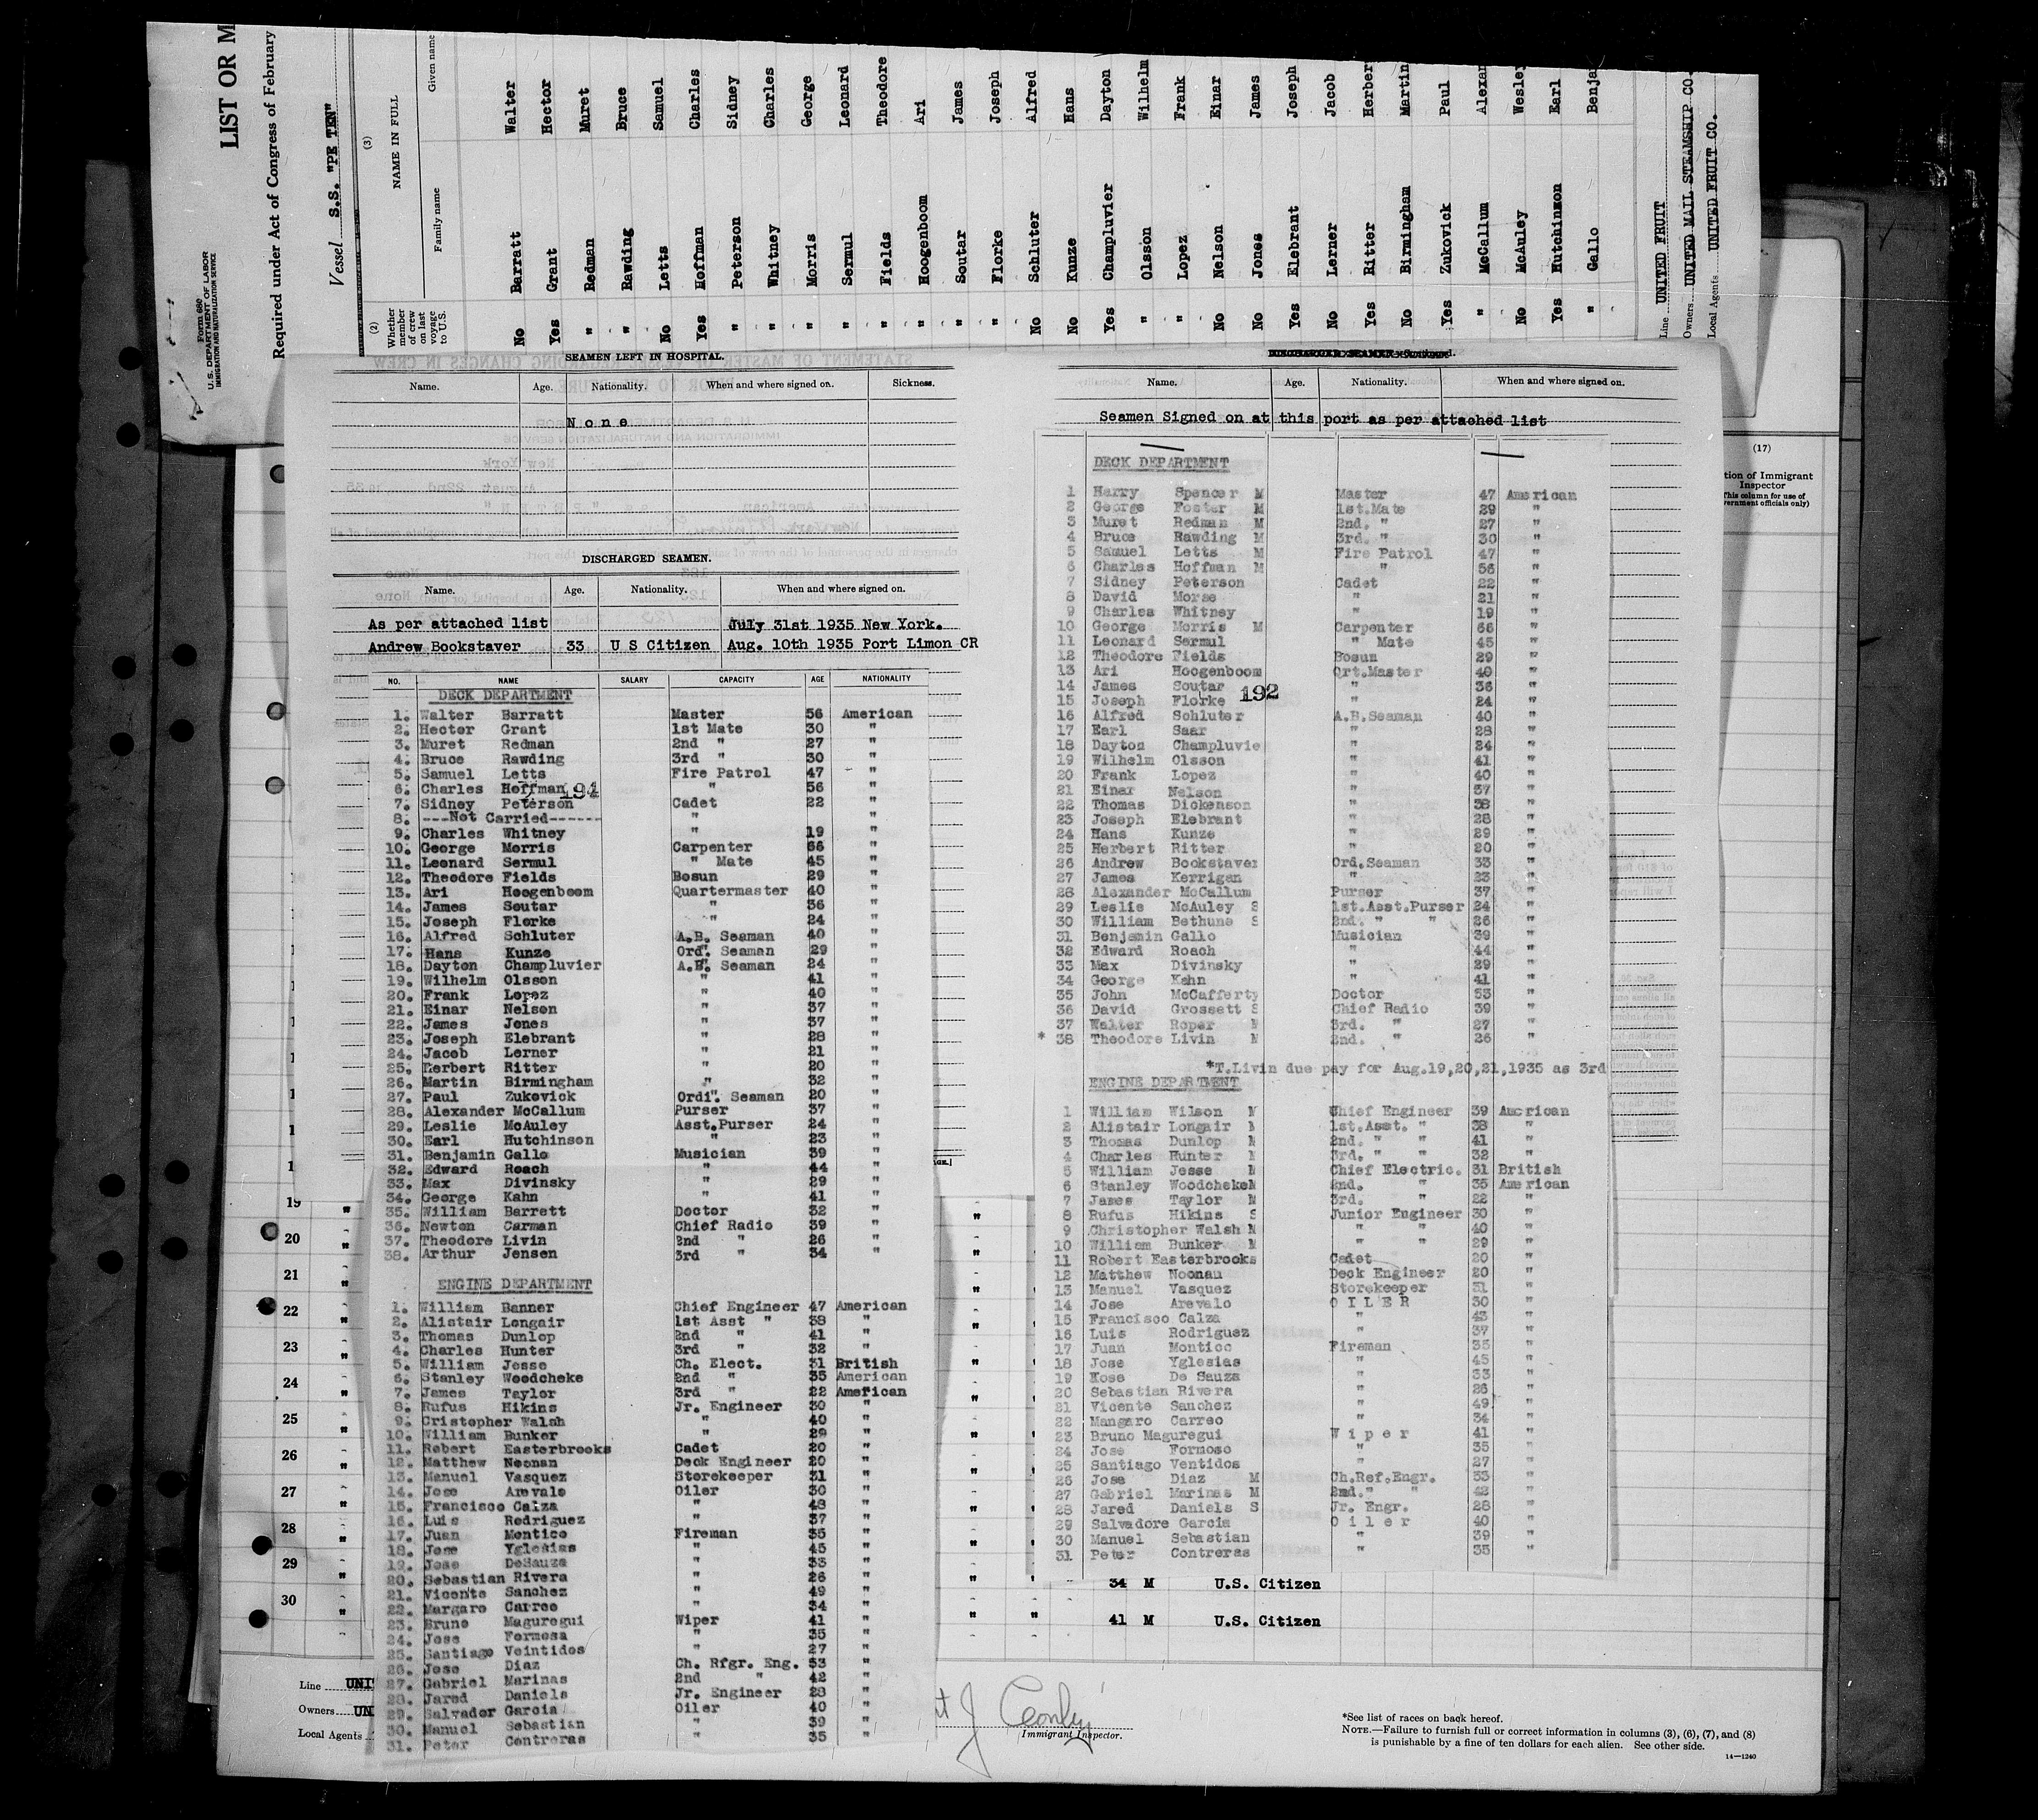 Form 680
U. S. DEPARTMENT OF LABOR
IMMIGRATION AND NATURALIZATION SERVICE
LIST OR M
Required under Act of Congress of February
Vessel S.S. "PE TEN"
(2)
Whether member of crew on last voyage to U.S.
(3)
NAME IN FULL
Family name Given name
No Barratt Walter
Yes Grant Hector
" Redman Muret
" Rawding Bruce
No Letts Samuel
Yes Hoffman Charles
" Peterson Sidney
" Whitney Charles
" Morris George
" Sermul Leonard
" Fields Theodore
" Hoogenboom Ari
" Soutar James
" Florke Joseph
No Schluter Alfred
No Kunze Hans
Yes Champluvier Dayton
" Olsson Wilhelm
" Lopez Frank
No Nelson Einar
No Jones James
Yes Elebrant Joseph
No Lerner Jacob
Yes Ritter Herber
No Birmingham Martin
Yes Zukovick Paul
" McCallum Alexan
No McAuley Wesley
Yes Hutchinson Earl
Gallo Benja
Line UNITED FRUIT
Owners UNITED MAIL STEAMSHIP CO.
Local Agents UNITED FRUIT CO.
SEAMEN LEFT IN HOSPITAL.
Name. Age. Nationality. When and where signed on. Sickness.
None
DISCHARGED SEAMEN.
Name. Age. Nationality. When and where signed on.
As per attached list July 31st 1935 New York.
Andrew Bookstaver 33 U S Citizen Aug. 10th 1935 Port Limon CR
NO. NAME SALARY CAPACITY AGE NATIONALITY
DECK DEPARTMENT
1. Walter Barratt Master 56 American
2. Hector Grant 1st Mate 30 "
3. Muret Redman 2nd " 27 "
4. Bruce Rawding 3rd " 30 "
5. Samuel Letts Fire Patrol 47 "
6. Charles Hoffman " 56 "
194
7. Sidney Peterson Cadet 22 "
8. ---Not Carried------ " "
9. Charles Whitney " 19 "
10. George Morris Carpenter 66 "
11. Leonard Sermul " Mate 45 "
12. Theodore Fields Bosun 29 "
13. Ari Hoogenboom Quartermaster 40 "
14. James Soutar " 36 "
15. Joseph Florke " 24 "
16. Alfred Schluter A.B. Seaman 40 "
17. Hans Kunze Ord. Seaman 29 "
18. Dayton Champluvier A.B. Seaman 24 "
19. Wilhelm Olsson " 41 "
20. Frank Lopez " 40 "
21. Einar Nelson " 37 "
22. James Jones " 37 "
23. Joseph Elebrant " 28 "
24. Jacob Lerner " 21 "
25. Herbert Ritter " 20 "
26. Martin Birmingham " 32 "
27. Paul Zukovick Ordi. Seaman 20 "
28. Alexander McCallum Purser 37 "
29. Leslie McAuley Asst.Purser 24 "
30. Earl Hutchinson " 23 "
31. Benjamin Gallo Musician 39 "
32. Edward Roach " 44 "
33. Max Divinsky " 29 "
34. George Kahn " 41 "
35. William Barrett Doctor 32 "
36. Newton Carman Chief Radio 39 "
37. Theodore Livin 2nd " 26 "
38. Arthur Jensen 3rd " 34 "
ENGINE DEPARTMENT
1. William Banner Chief Engineer 47 American
2. Alistair Longair 1st Asst " 38 "
3. Thomas Dunlop 2nd " 41 "
4. Charles Hunter 3rd " 32 "
5. William Jesse Ch. Elect. 31 British
6. Stanley Woodcheke 2nd " 35 American
7. James Taylor 3rd " 22 American
8. Rufus Hikins Jr. Engineer 30 "
9. Cristopher Walsh " 40 "
10. William Bunker " 29 "
11. Robert Easterbrooks Cadet 20 "
12. Matthew Noonan Deck Engineer 20 "
13. Manuel Vasquez Storekeeper 31 "
14. Jose Arevalo Oiler 30 "
15. Francisco Calza " 43 "
16. Luis Rodriguez " 37 "
17. Juan Montico Fireman 35 "
18. Jose Yglesias " 45 "
19. Jose DeSauza " 33 "
20. Sebastian Rivera " 26 "
21. Vicente Sanchez " 49 "
22. Margaro Carreo " 34 "
23. Bruno Maguregui Wiper 41 "
24. Jose Formosa " 35 "
25. Santiago Veintidos " 27 "
26. Jose Diaz Ch. Rfgr. Eng. 53 "
27. Gabriel Marinas 2nd " 42 "
28. Jared Daniels Jr. Engineer 28 "
29. Salvador Garcia Oiler 40 "
30. Manuel Sebastian " 39 "
31. Peter Contreras " 35 "
Name. Age. Nationality. When and where signed on.
Seamen Signed on at this port as per attached list
DECK DEPARTMENT
1 Harry Spencer M Master 47 American
2 George Foster M 1st.Mate 29 "
3 Muret Redman M 2nd. " 27 "
4 Bruce Rawding M 3rd. " 30 "
5 Samuel Letts M Fire Patrol 47 "
6 Charles Hoffman M " 56 "
7 Sidney Peterson Cadet 22 "
8 David Morse " 21 "
9 Charles Whitney " 19 "
10 George Morris M Carpenter 66 "
11 Leonard Sermul " Mate 45 "
12 Theodore Fields Bosun 29 "
13 Ari Hoogenboom Qrt.Master 40 "
14 James Soutar " 36 "
192
15 Joseph Florke " 24 "
16 Alfred Schluter A.B.Seaman 40 "
17 Earl Saar " 28 "
18 Dayton Champluvie " 24 "
19 Wilhelm Olsson " 41 "
20 Frank Lopez " 40 "
21 Einar Nelson " 37 "
22 Thomas Dickenson " 38 "
23 Joseph Elebrant " 28 "
24 Hans Kunze " 29 "
25 Herbert Ritter " 20 "
26 Andrew Bookstaver Ord.Seaman 33 "
27 James Kerrigan " 23 "
28 Alexander McCallum Purser 37 "
29 Leslie McAuley S 1st.Asst.Purser 24 "
30 William Bethune S 2nd. " " 26 "
31 Benjamin Gallo Musician 39 "
32 Edward Roach " 44 "
33 Max Divinsky " 29 "
34 George Kahn " 41 "
35 John McCafferty Doctor 53 "
36 David Grossett S Chief Radio 39 "
37 Walter Roper M 3rd. " 27 "
* 38 Theodore Livin M 2nd. " 26 "
*T.Livin due pay for Aug.19,20,21,1935 as 3rd
ENGINE DEPARTMENT
1 William Wilson M Chief Engineer 39 American
2 Alistair Longair M 1st.Asst. " 38 "
3 Thomas Dunlop M 2nd. " " 41 "
4 Charles Hunter M 3rd. " " 32 "
5 William Jesse M Chief Electric. 31 British
6 Stanley WoodchekeM 2nd. " 35 American
7 James Taylor M 3rd. " 22 "
8 Rufus Hikins S Junior Engineer 30 "
9 Christopher Walsh M " " 40 "
10 William Bunker M " " 29 "
11 Robert Easterbrooks Cadet 20 "
12 Matthew Noonan Deck Engineer 20 "
13 Manuel Vasquez Storekeeper 31 "
14 Jose Arevalo O I L E R 30 "
15 Francisco Calza " 43 "
16 Luis Rodriguez " 37 "
17 Juan Montico Fireman 35 "
18 Jose Yglesias " 45 "
19 Kose De Sauza " 33 "
20 Sebastian Rivera " 26 "
21 Vicente Sanchez " 49 "
22 Mangaro Carreo " 34 "
23 Bruno Maguregui W i p e r 41 "
24 Jose Formoso " 35 "
25 Santiago Ventidos " 27 "
26 Jose Diaz M Ch.Ref.Engr. 53 "
27 Gabriel Marinas M 2nd. " " 42 "
28 Jared Daniels S Jr. Engr. 28 "
29 Salvadore Garcia O i l e r 40 "
30 Manuel Sebastian " 39 "
31 Peter Contreras " 35 "
(17)
tion of Immigrant
Inspector
This column for use of
ernment officials only)
19
20
21
22
23
24
25
26
27
28
29
30
34 M U.S. Citizen
41 M U.S. Citizen
Line UNI
Owners UN
Local Agents
Immigrant Inspector.
*See list of races on back hereof.
NOTE.—Failure to furnish full or correct information in columns (3), (6), (7), and (8)
is punishable by a fine of ten dollars for each alien. See other side.
14—1240